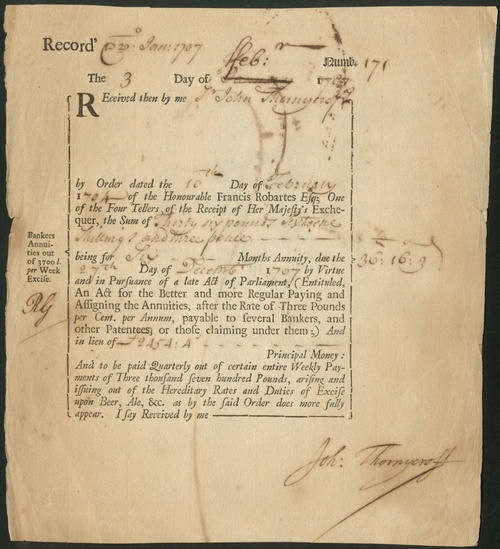 Record'  20º Jan: 1707
Feb: r
Numb. 171
The 3 Day of January 1707
REceived then by me Sr John Thornycroft
by Order dated the 10th Day of February
of the Honourable Francis Robartes Esq; One
of the Four Tellers of the Receipt of Her Majesty's Exche-
quer, the Sum of Thirty six pounds Sixteene
Shillings and three pence
being for Six Months Annuity, due the
36: 16: 3
27th Day of Decemb 1707 by Virtue
and in Pursuance of a late Act of Parliament, (Entituled,
An Act for the Better and more Regular Paying and
Assigning the Annuities, after the Rate of Three Pounds
per Cent. per Annum, payable to several Bankers, and
other Patentees, or those claiming under them;) And
in lieu of 2454: 4
Principal Money:
And to be paid Quarterly out of certain entire Weekly Pay-
ments of Three thousand seven hundred Pounds, arising and
issuing out of the Hereditary Rates and Duties of Excise
upon Beer, Ale, &c. as by the said Order does more fully
appear. I say Received by me
Bankers
Annui-
ties out
of 3700 l.
per Week
Excise.
Joh: Thornycroft